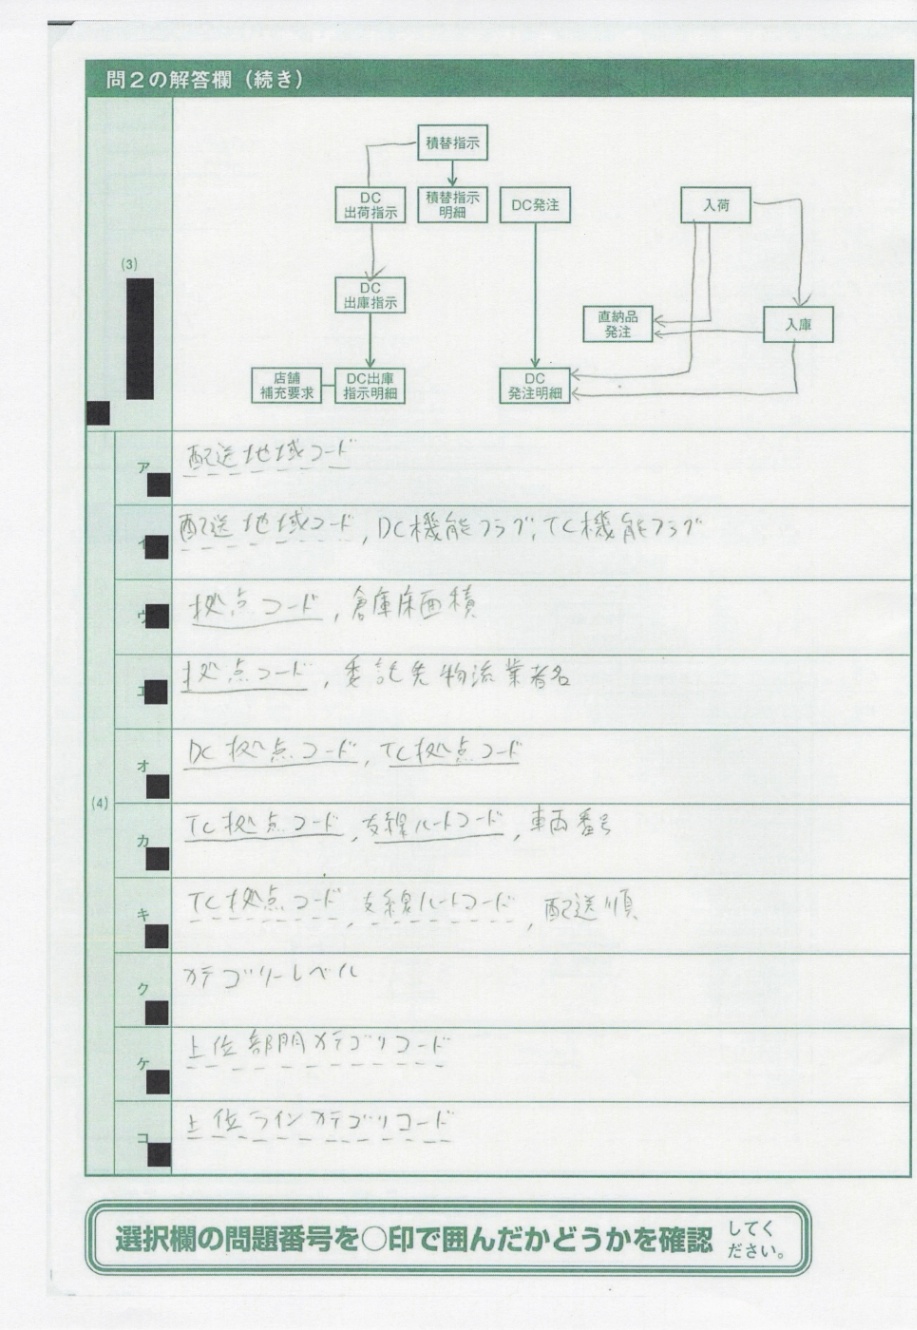 問2の解答欄(続き)
(3)
積替指示
DC
出荷指示
積替指示
明細
DC発注
入荷
DC
出庫指示
直納品
発注
入庫
店舗
補充要求
DC出庫
指示明細
DC
発注明細
(4)
ア
配送地域コード
イ
配送地域コード, DC機能フラグ, TC機能フラグ
ウ
拠点コード, 倉庫床面積
エ
拠点コード, 委託先物流業者名
オ
DC拠点コード, TC拠点コード
カ
TC拠点コード, 支線ルートコード, 車両番号
キ
TC拠点コード, 支線ルートコード, 配送順
ク
カテゴリーレベル
ケ
上位部門カテゴリコード
コ
上位ラインカテゴリコード
選択欄の問題番号を○印で囲んだかどうかを確認してく
ださい。